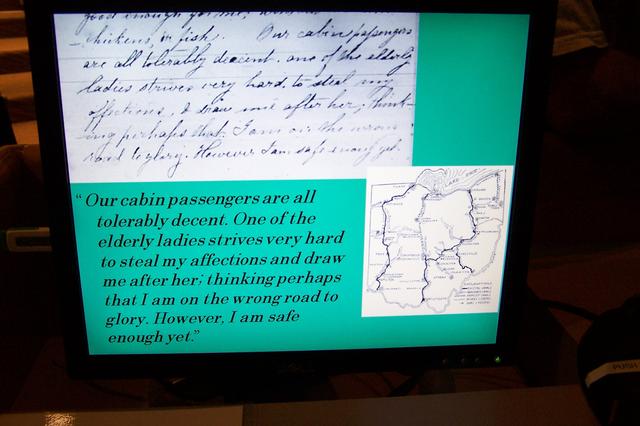 good enough for me,
chickens, or fish. Our cabin passengers
are all tolerably decent. one of the elderly
ladies strives very hard, to steal my
affections, & draw me after her; think-
ing perhaps that I am on the wrong
road to glory. However I am safe enough yet.
"Our cabin passengers are all
tolerably decent. One of the
elderly ladies strives very hard
to steal my affections and draw
me after her; thinking perhaps
that I am on the wrong road to
glory. However, I am safe
enough yet."
LAKE ERIE
PUSH